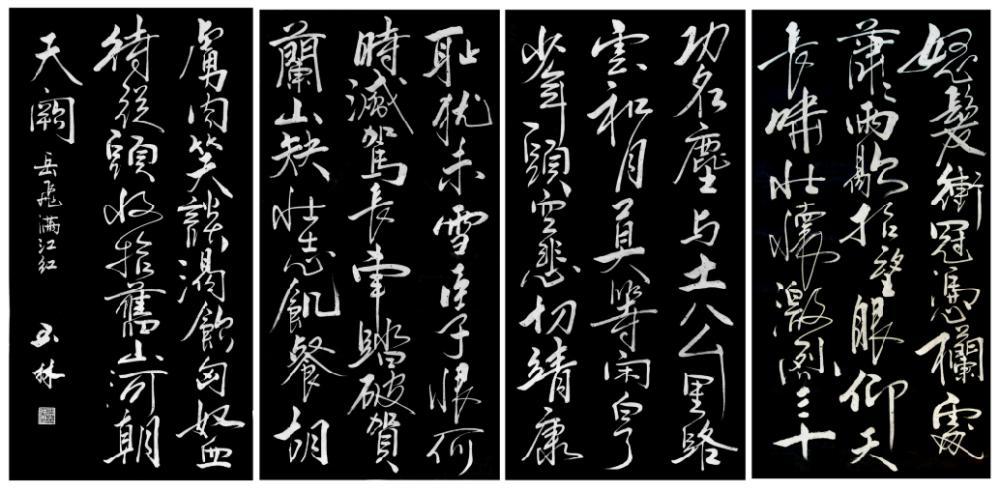 怒髮衝冠憑欄處
蕭蕭雨歇抬望眼仰天
長嘯壯懷激烈三十
功名塵与土八千里路
雲和月莫等閑白了
少年頭空悲切靖康
耻猶未雪臣子恨何
時滅駕長車踏破賀
蘭山缺壯志飢餐胡
虜肉笑談渴飲匈奴血
待從頭收拾舊山河朝
天闕 岳飛滿江紅